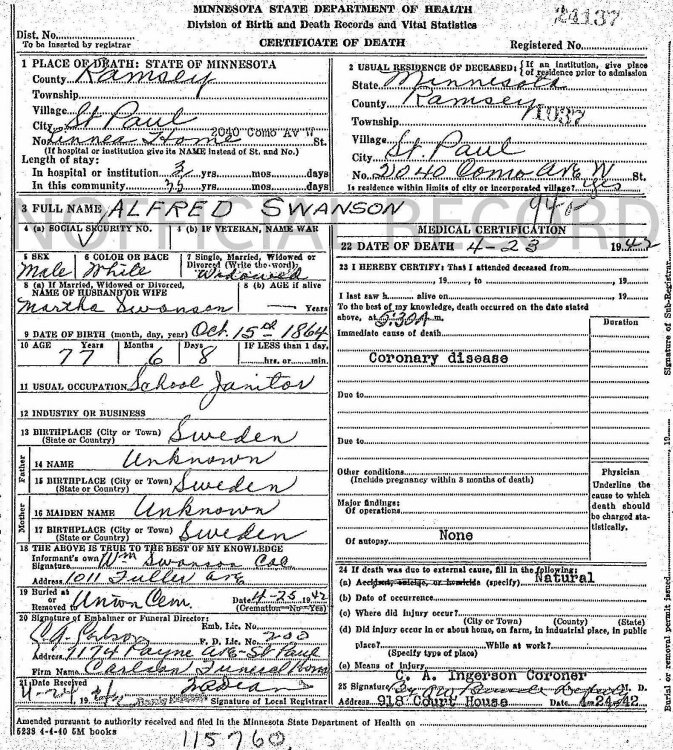 MINNESOTA STATE DEPARTMENT OF HEALTH
Division of Birth and Death Records and Vital Statistics
CERTIFICATE OF DEATH
24137
Dist. No.
To be inserted by registrar
Registered No.
1 PLACE OF DEATH: STATE OF MINNESOTA
County Ramsey
Township
Village
City St Paul
No. Linnea Home 2040 Como Av W St.
(If hospital or institution give its NAME instead of St. and No.)
Length of stay:
In hospital or institution 3 yrs. mos. days
In this community 55 yrs. mos. days
2 USUAL RESIDENCE OF DECEASED: {If an institution, give place of residence prior to admission
State Minnesota
County Ramsey
1037
Township
Village
City St Paul
No. 2040 Como Ave W St.
Is residence within limits of city or incorporated village? Yes
3 FULL NAME ALFRED SWANSON
4 (a) SOCIAL SECURITY NO. 4 (b) IF VETERAN, NAME WAR
5 SEX Male
6 COLOR OR RACE White
7 Single, Married, Widowed or Divorced (Write the word) Widowed
8 (a) If Married, Widowed or Divorced, NAME OF HUSBAND OR WIFE
Martha Swanson
8 (b) AGE if alive — Years
9 DATE OF BIRTH (month, day, year) Oct. 15th 1864
10 AGE 77 Years Months 6 Days 8 IF LESS than 1 day, hrs. or min.
11 USUAL OCCUPATION School Janitor
12 INDUSTRY OR BUSINESS
13 BIRTHPLACE (City or Town) (State or Country) Sweden
Father
14 NAME Unknown
15 BIRTHPLACE (City or Town) (State or Country) Sweden
Mother
16 MAIDEN NAME Unknown
17 BIRTHPLACE (City or Town) (State or Country) Sweden
18 THE ABOVE IS TRUE TO THE BEST OF MY KNOWLEDGE
Informant's own Signature Wm Swanson
Address 1011 Fuller Ave
19 Buried at or Removed to Union Cem. Date 4-25 1942
(Cremation—No—Yes)
20 Signature of Embalmer or Funeral Director:
Emb. Lic. No.
F. D. Lic. No. 200
Address 1174 Payne Ave-St Paul
Firm Name Carlson Funeral Home
21 Date Received
Signature of Local Registrar
MEDICAL CERTIFICATION
22 DATE OF DEATH 4-23 1942
23 I HEREBY CERTIFY: That I attended deceased from
, 19 to , 19
I last saw h alive on , 19
To the best of my knowledge, death occurred on the date stated above, at 5:30A m.
Immediate cause of death
Duration
Coronary disease
Due to
Due to
Other conditions
(Include pregnancy within 3 months of death)
Major findings:
Of operations
Of autopsy None
Physician
Underline the cause to which death should be charged statistically.
24 If death was due to external cause, fill in the following:
(a) Accident, suicide, or homicide (specify) Natural
(b) Date of occurrence
(c) Where did injury occur?
(City or Town) (County) (State)
(d) Did injury occur in or about home, on farm, in industrial place, in public place? While at work?
(Specify type of place)
(e) Means of injury
C. A. Ingerson Coroner
25 Signature M. D.
Address 918 Court House Date 4-24-42
Amended pursuant to authority received and filed in the Minnesota State Department of Health on
5239 4-4-40 5M books
115760
Signature of Sub-Registrar
Burial or removal permit issued 19